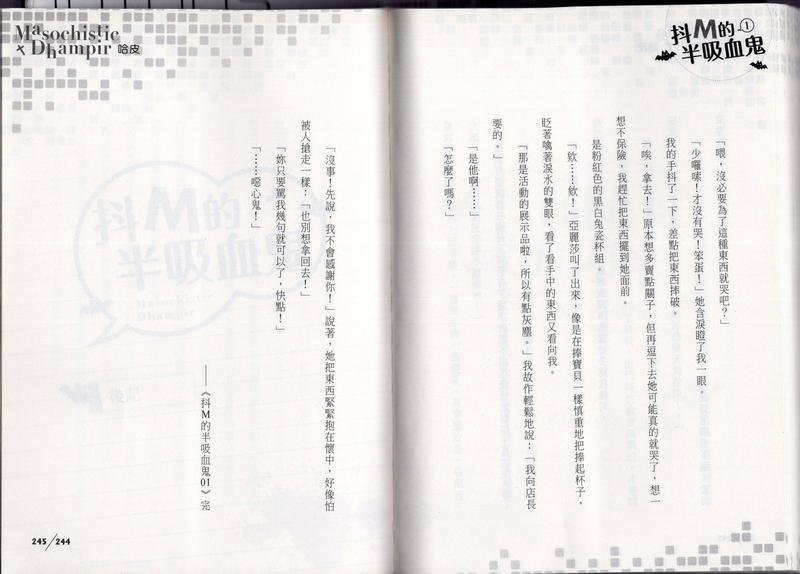 抖M的
半吸血鬼
1
「喂，沒必要為了這種東西就哭吧？」
「少囉嗦！才沒有哭！笨蛋！」她含淚瞪了我一眼。
我的手抖了一下，差點把東西摔破。
「唉，拿去！」原本想多賣點關子，但再逗下去她可能真的就哭了，想一
想不保險，我趕忙把東西擺到她面前。
是粉紅色的黑白兔瓷杯組。
「欸……欸！」亞麗莎叫了出來，像是在捧寶貝一樣慎重地把捧起杯子，
眨著噙著淚水的雙眼，看了看手中的東西又看向我。
「那是活動的展示品啦，所以有點灰塵。」我故作輕鬆地說：「我向店長
要的。」
「是他啊……」
「怎麼了嗎？」
Masochistic
Dhampir 哈皮
「沒事！先說，我不會感謝你！」說著，她把東西緊緊抱在懷中，好像怕
被人搶走一樣：「也別想拿回去！」
「妳只要罵我幾句就可以了，快點！」
「……噁心鬼！」
——《抖M的半吸血鬼01》完
245/244
抖M的
半吸血鬼
Masochistic
Dhampir
後記